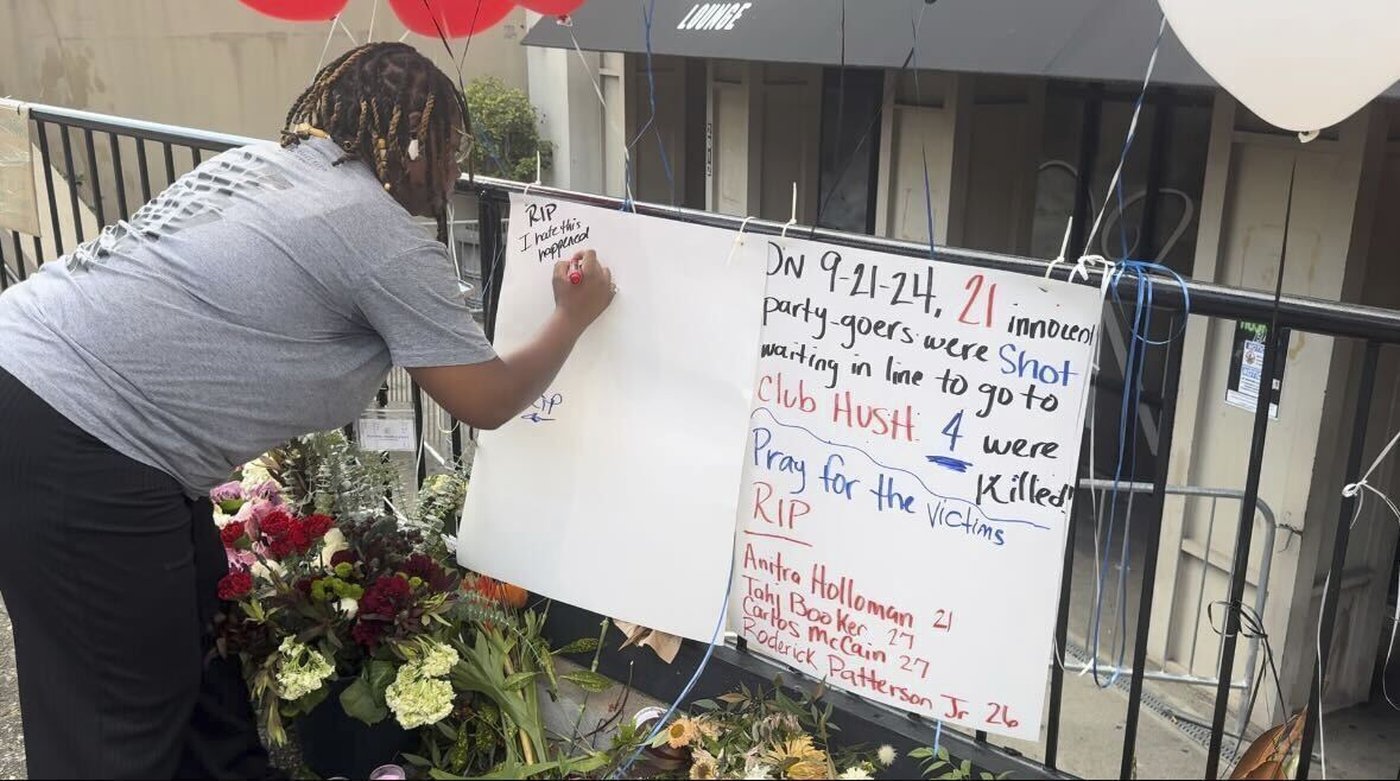 LOUNGE
RIP
I hate this
happened
RIP
ON 9-21-24, 21 innocent
party-goers were Shot
waiting in line to go to
Club HUSH. 4 were
Killed!
Pray for the victims
RIP
Anitra Holloman 21
Tahj Booker 27
Carlos McCain 27
Roderick Patterson Jr 26